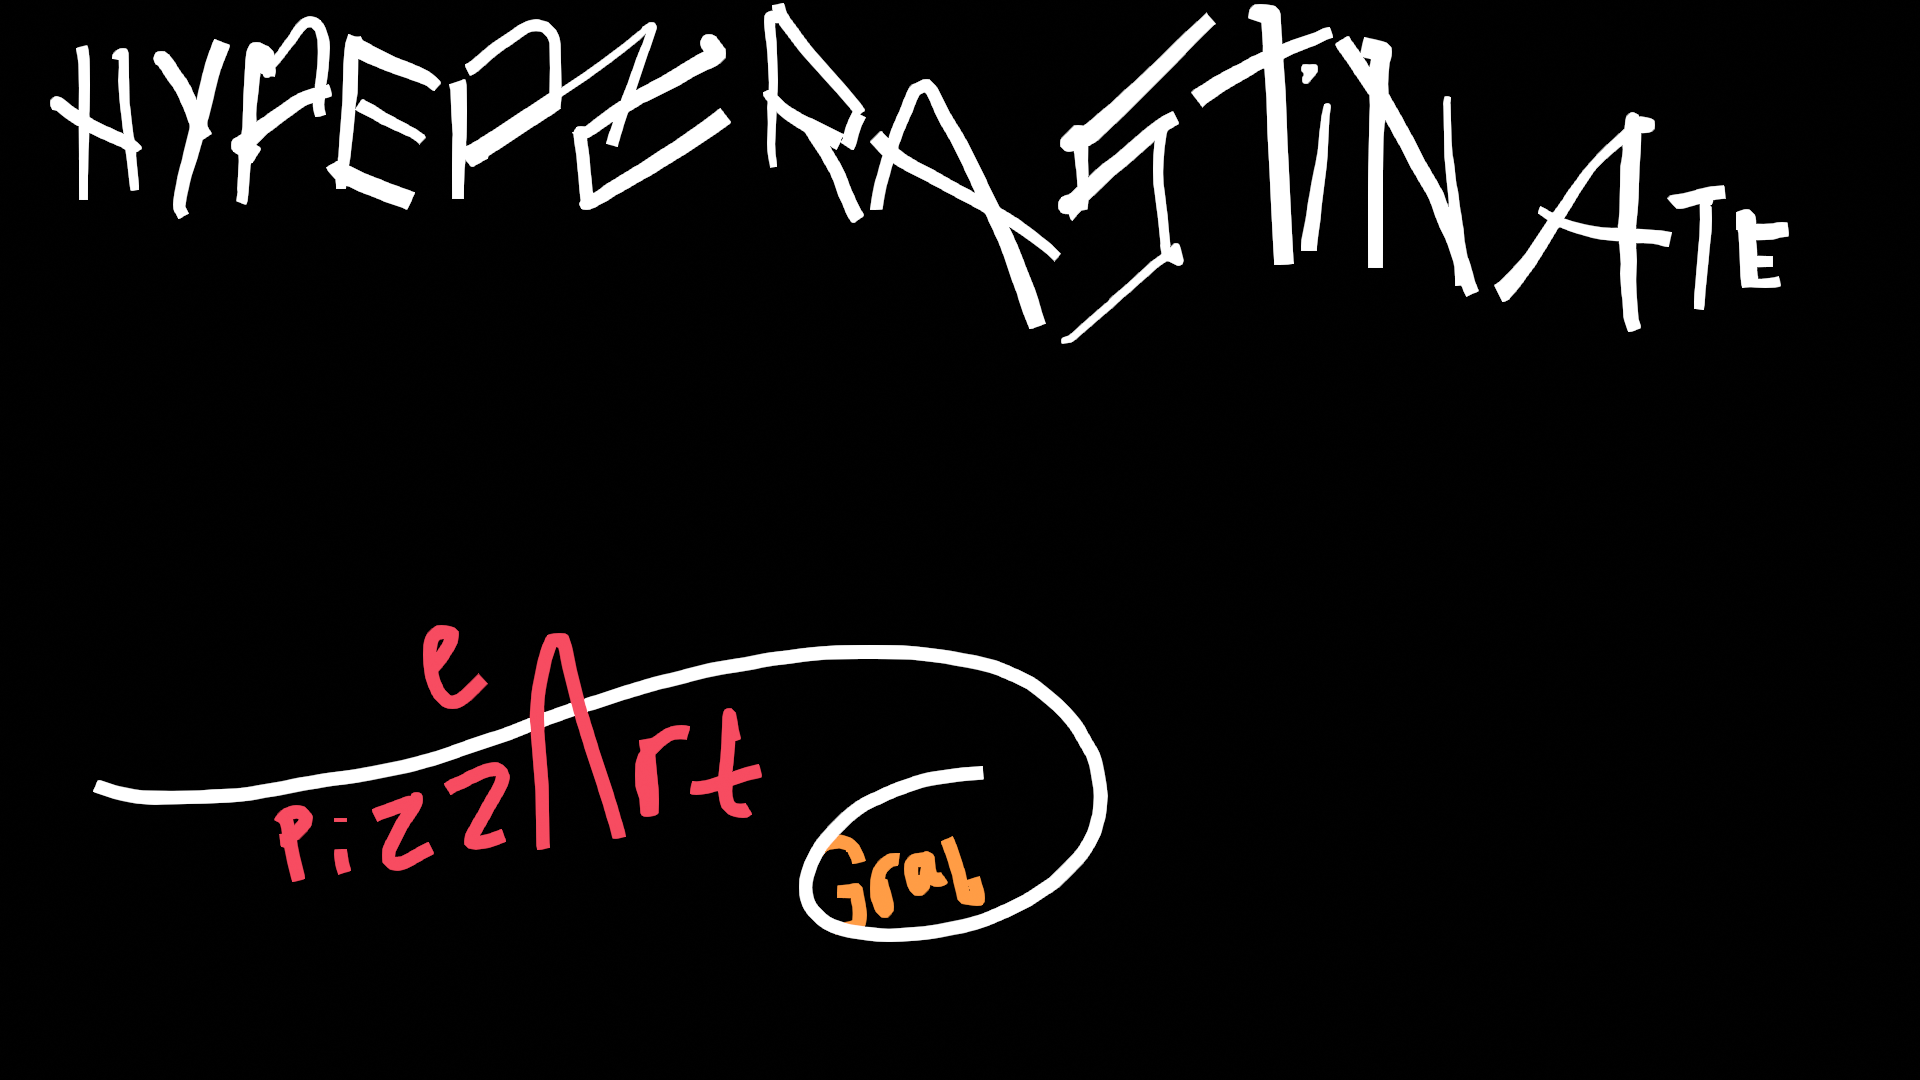 HYPEPZRASTiNATE
e
PizzArt
Gral